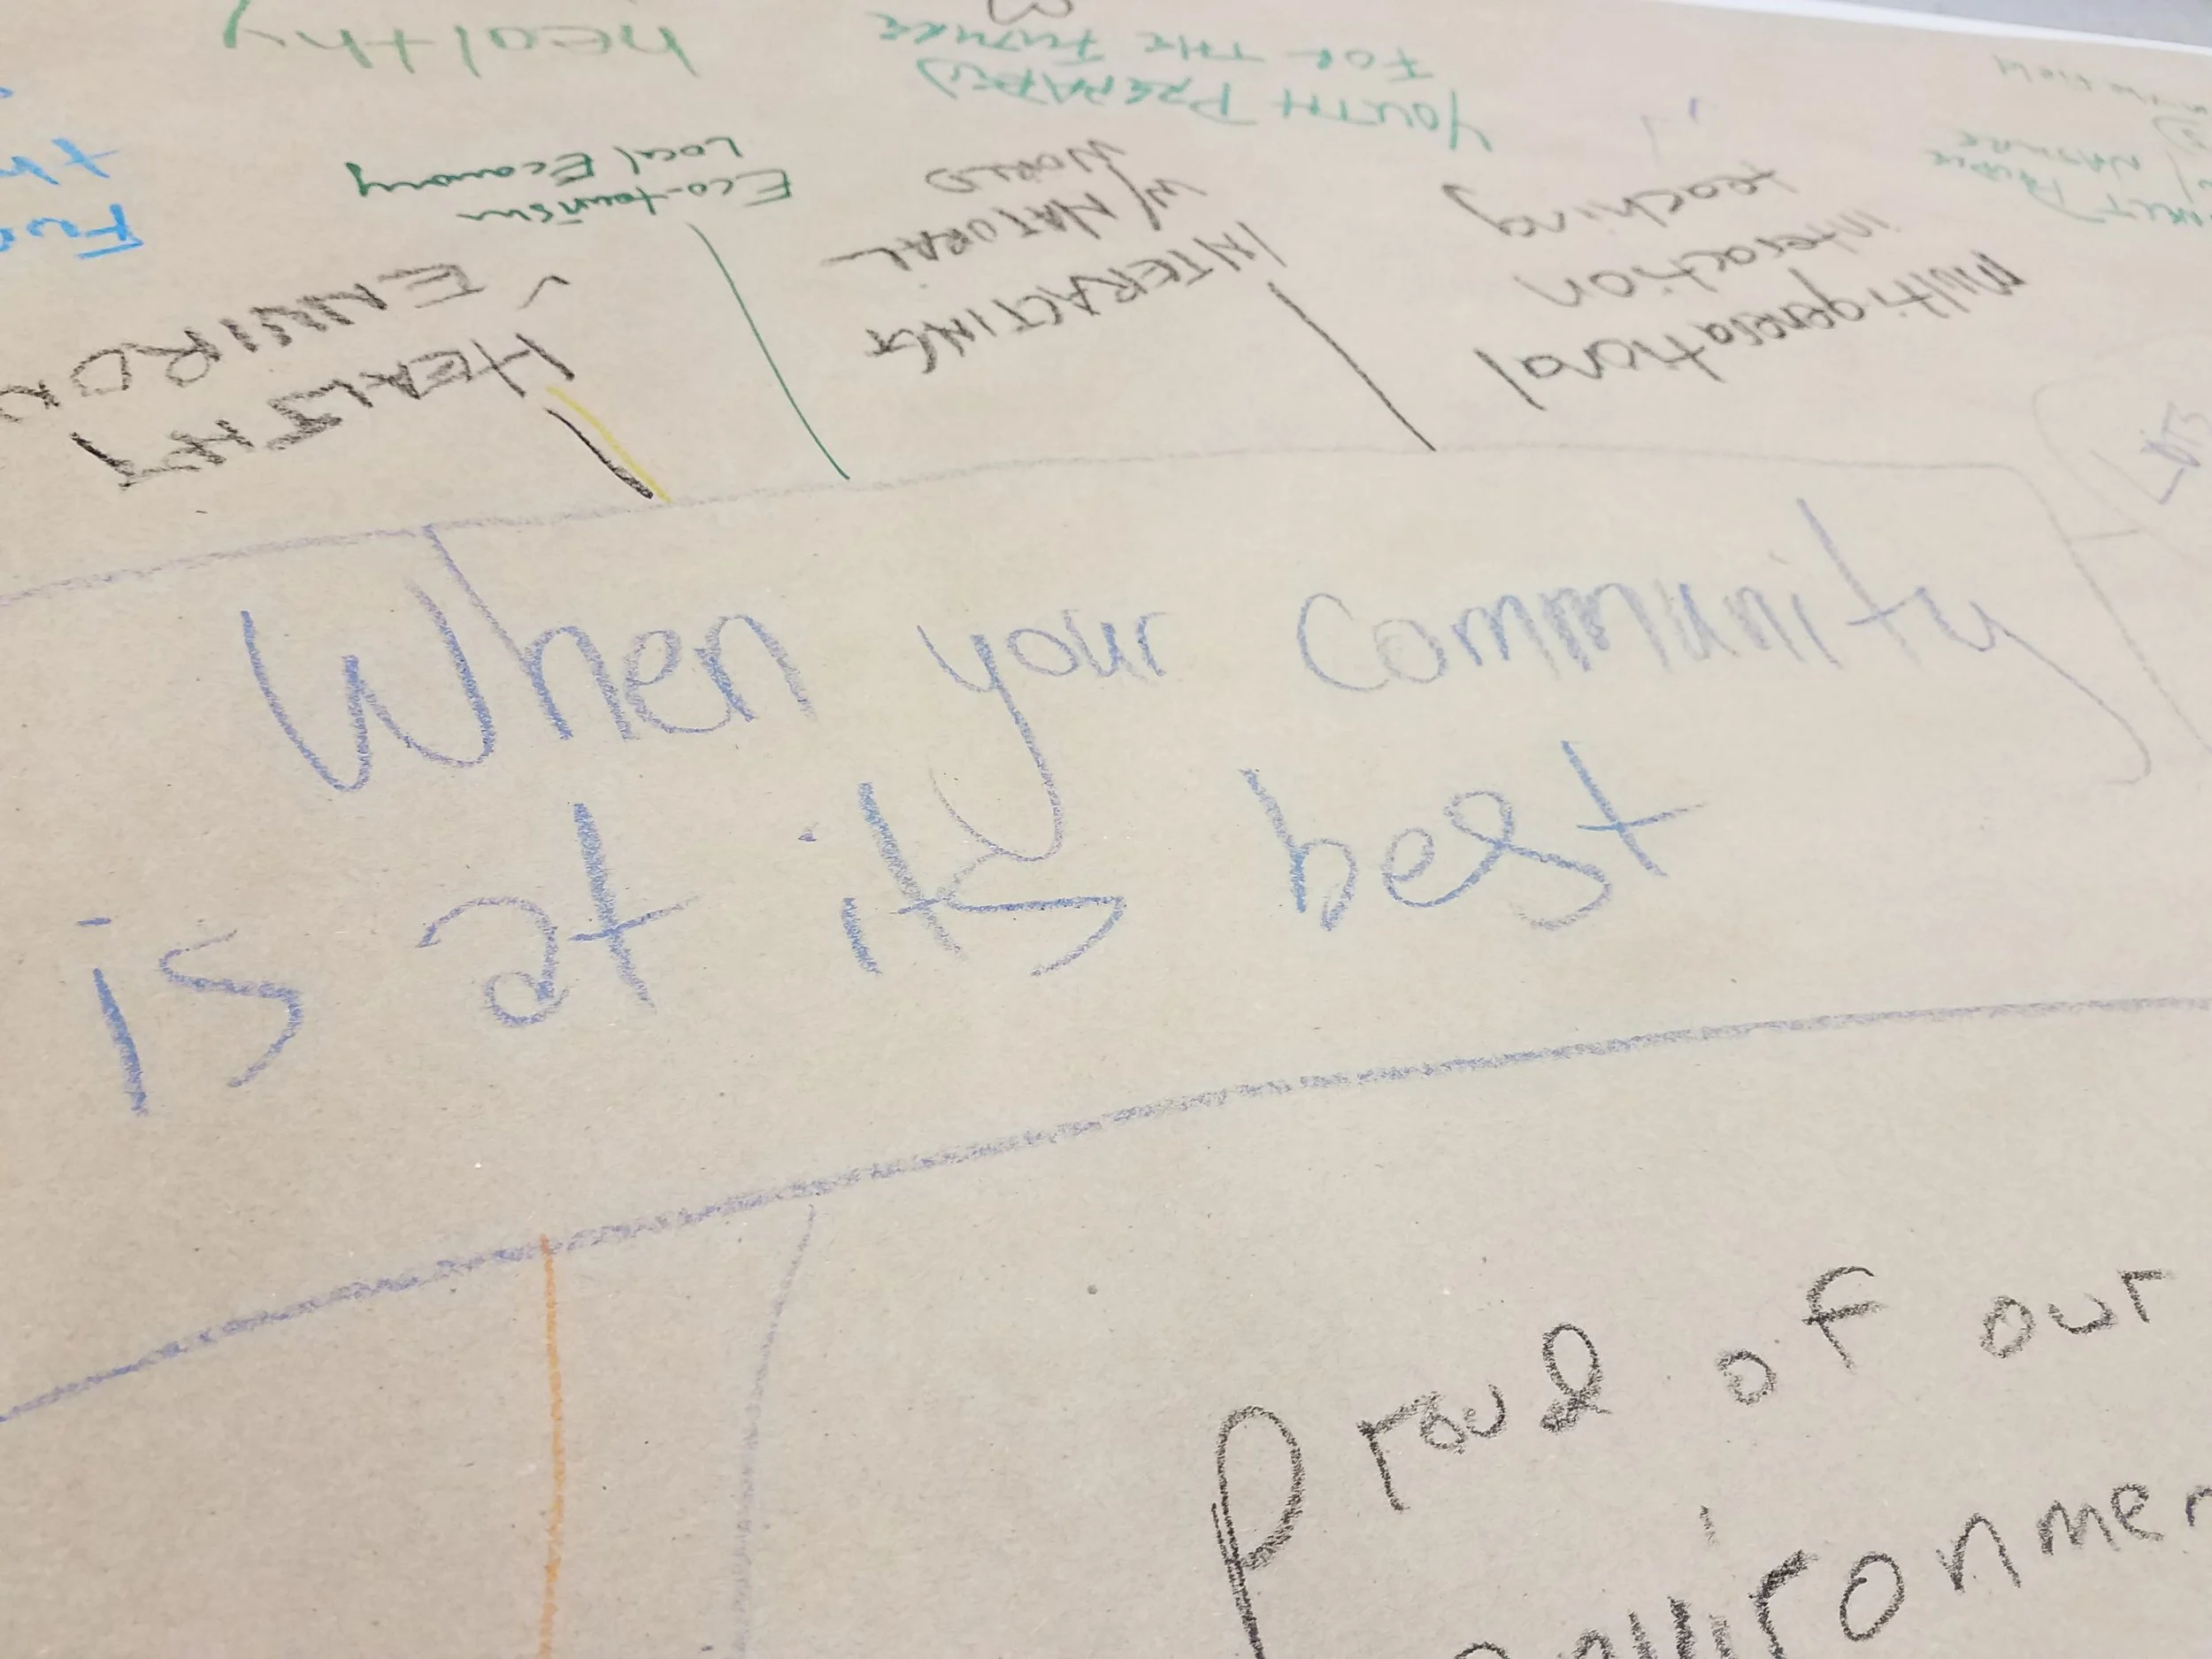 healthy
YOUTH PREPARED
FOR THE FUTURE
Eco-tourism
Local Economy
HEALTHY
ENVIRON
INTERACTING
W/ NATURAL
WORLD
Multigenerational
interaction
teaching
When your community
is at its best
Proud of our
environmen